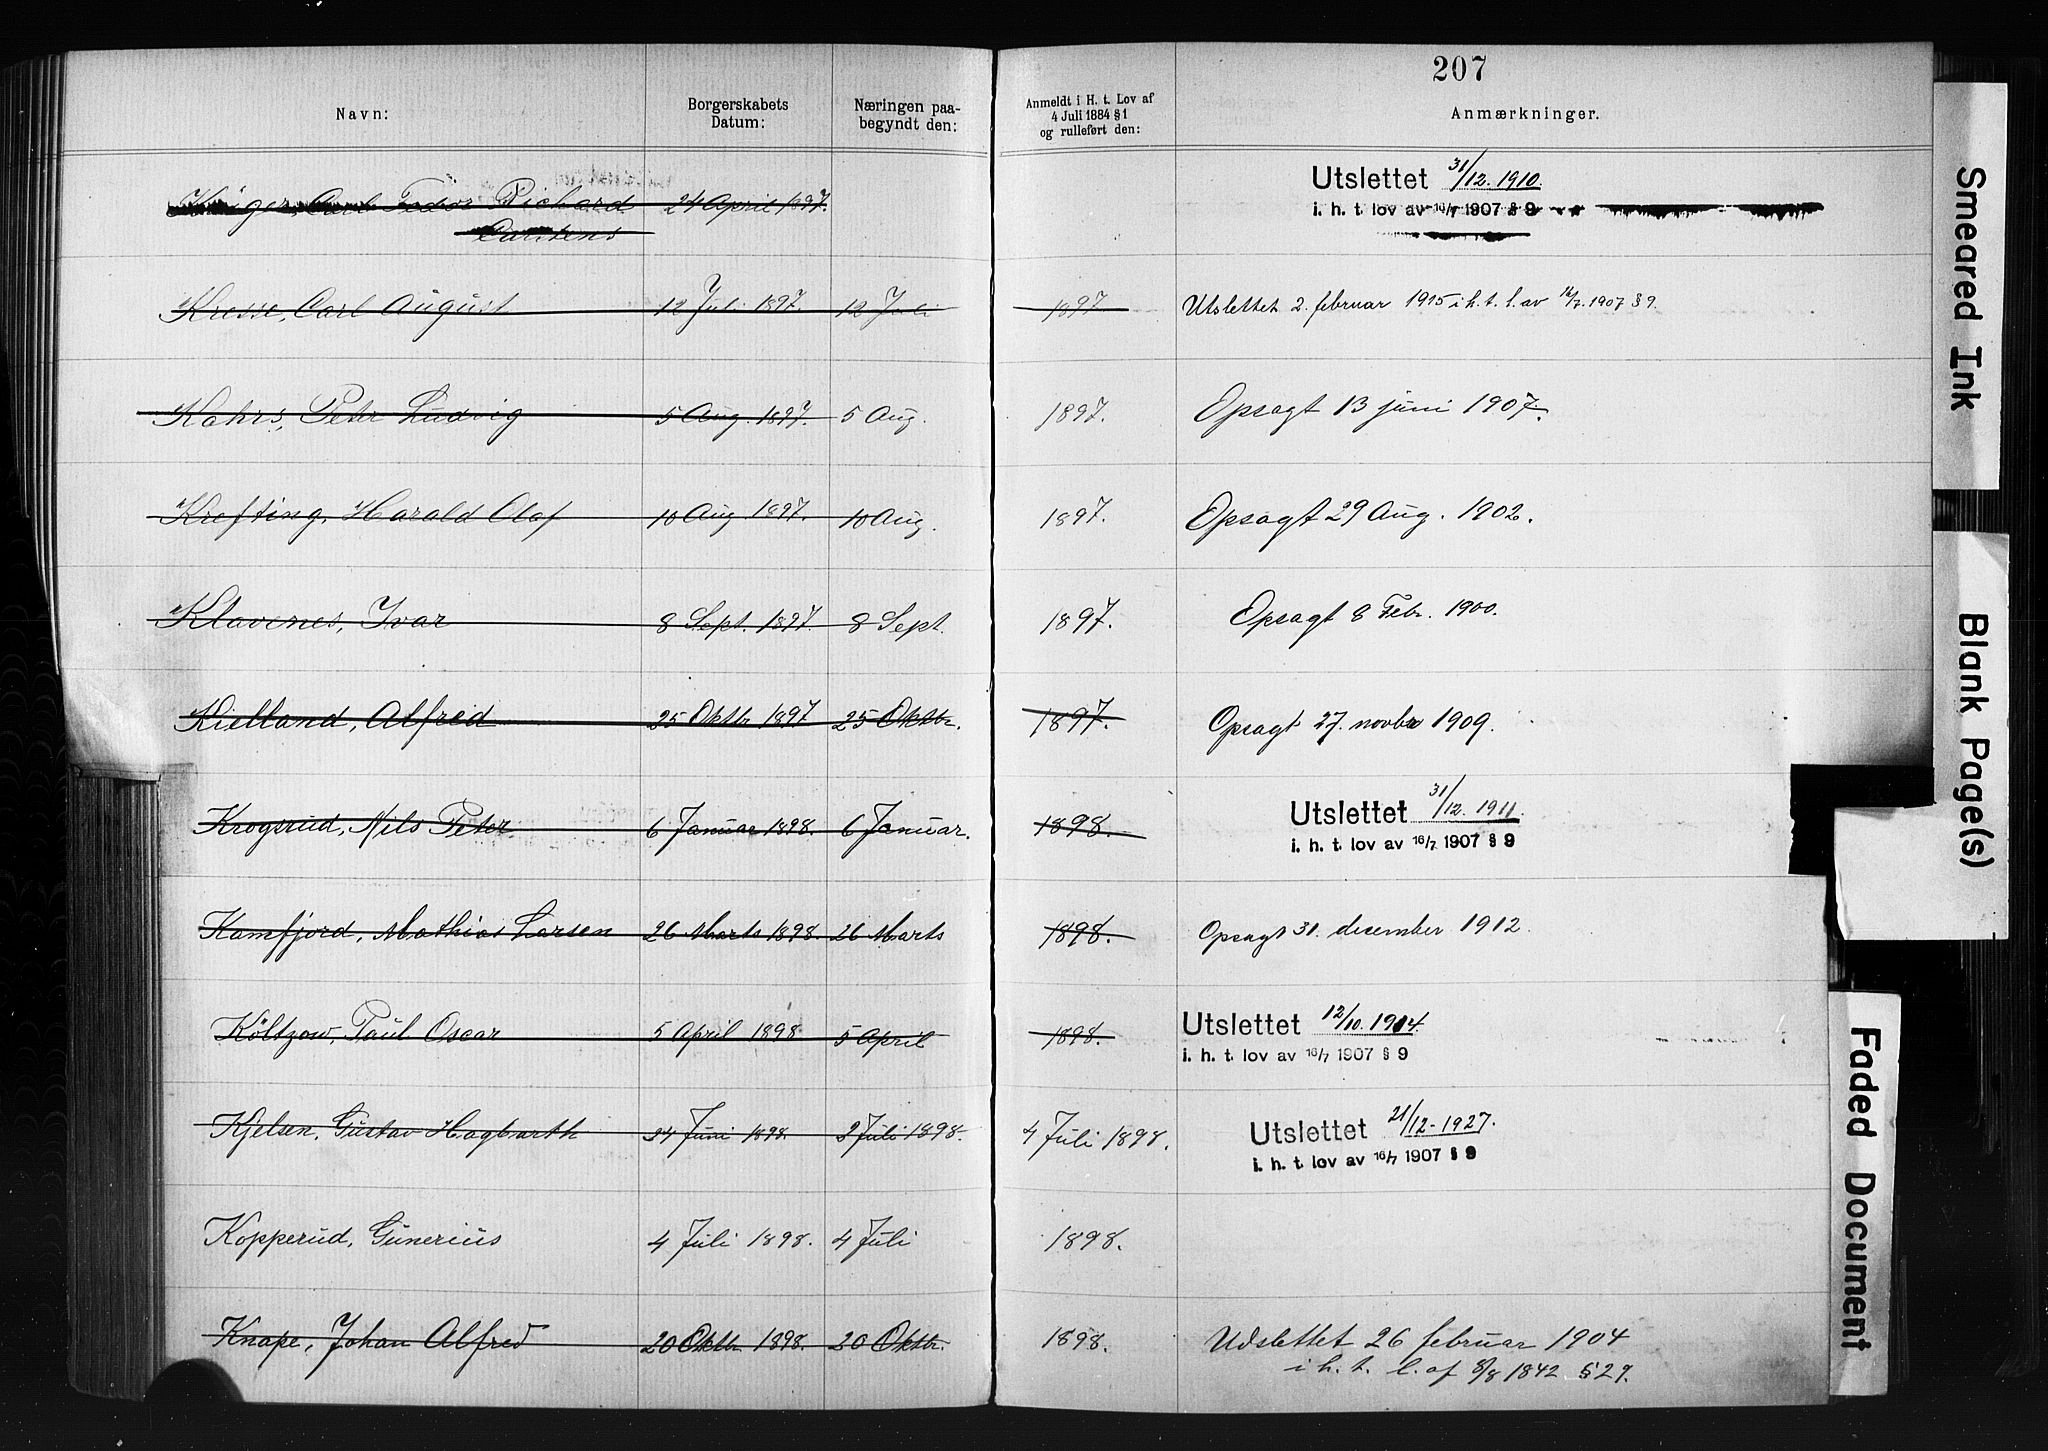 207
Navn:
Borgerskabets Datum:
Næringen paa-
begyndt den:
Anmeldt i H. t. Lov af
4 Juli 1884 § 1
og rulleført den:
Anmærkninger.
Carl Fedor Richard 24 April 1897. Utslettet 31/12. 1910.
Carstens i. h. t. lov av 16/7 1907 § 9
Kresse, Carl August 12 Juli 1897. 12 Juli 1897 Utslettet 2. februar 1915 i h. t. l. av 16/7. 1907 § 9.
Kahrs, Peter Ludvig 5 Aug. 1897. 5 Aug. 1897. Opsagt 13 juni 1907.
Krefting, Harald Olaf 10 Aug 1897. 10 Aug. 1897. Opsagt 29 Aug. 1902.
Klavenes, Ivar 8 Sept. 1897. 8 Sept. 1897. Opsagt 8 Febr. 1900.
Kielland, Alfred 25 Oktbr 1897 25 Oktbr. 1897. Opsagt 27. novbr 1909.
Krogsrud, Nils Peter. 6 Januar 1898. 6 Januar. 1898. Utslettet 31/12. 1911.
i. h. t. lov av 16/7 1907 § 9
Kamfjord, Mathias Larsen 26 Marts 1898. 26 Marts 1898. Opsagt 31. desember 1912.
Költzow, Paul Oscar 5 April 1898 5 April 1898. Utslettet 12/10. 1914.
i. h. t. lov av 16/7 1907 § 9
Kjelsen, Gustav Hagbarth 24 Juni 1898. 2 Juli 1898. 4 Juli 1898. Utslettet 21/12-1927.
i. h. t. lov av 16/7 1907 § 9
Kopperud, Gunerius 4 Juli 1898. 4 Juli 1898.
Knape, Johan Alfred 20 Oktbr 1898. 20 Oktbr. 1898. Udslettet 26 februar 1904
i h. t. l. af 8/8 1842 § 29.
Smeared Ink
Blank Page(s)
Faded Document